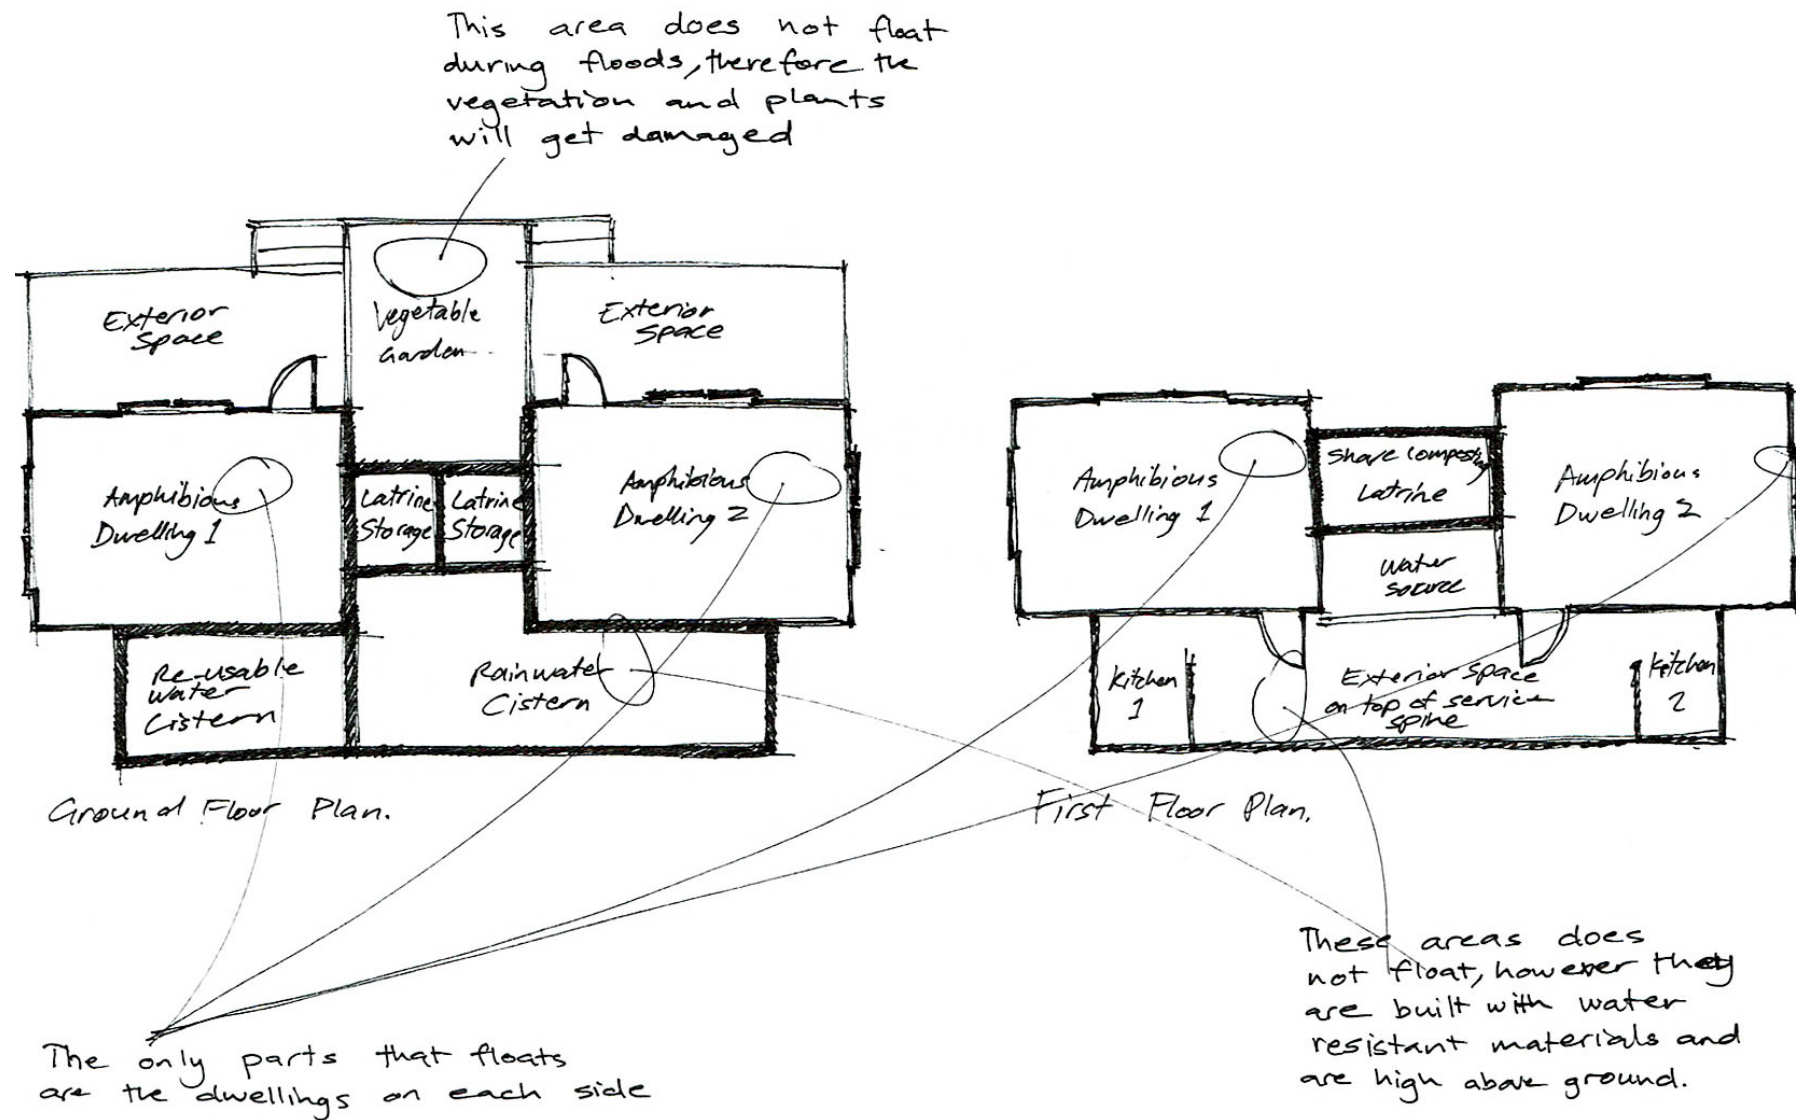 This area does not float
during floods, therefore the
vegetation and plants
will get damaged
Exterior
Space
Vegetable
Garden
Exterior
Space
Amphibious
Dwelling 1
Latrine
Storage
Latrine
Storage
Amphibious
Dwelling 2
Re-usable
water
Cistern
Rainwater
Cistern
Ground Floor Plan.
Amphibious
Dwelling 1
Share composting
Latrine
Amphibious
Dwelling 2
Water
source
Kitchen
1
Exterior space
on top of service
spine
Kitchen
2
First Floor Plan.
The only parts that floats
are the dwellings on each side
These areas does
not float, however they
are built with water
resistant materials and
are high above ground.